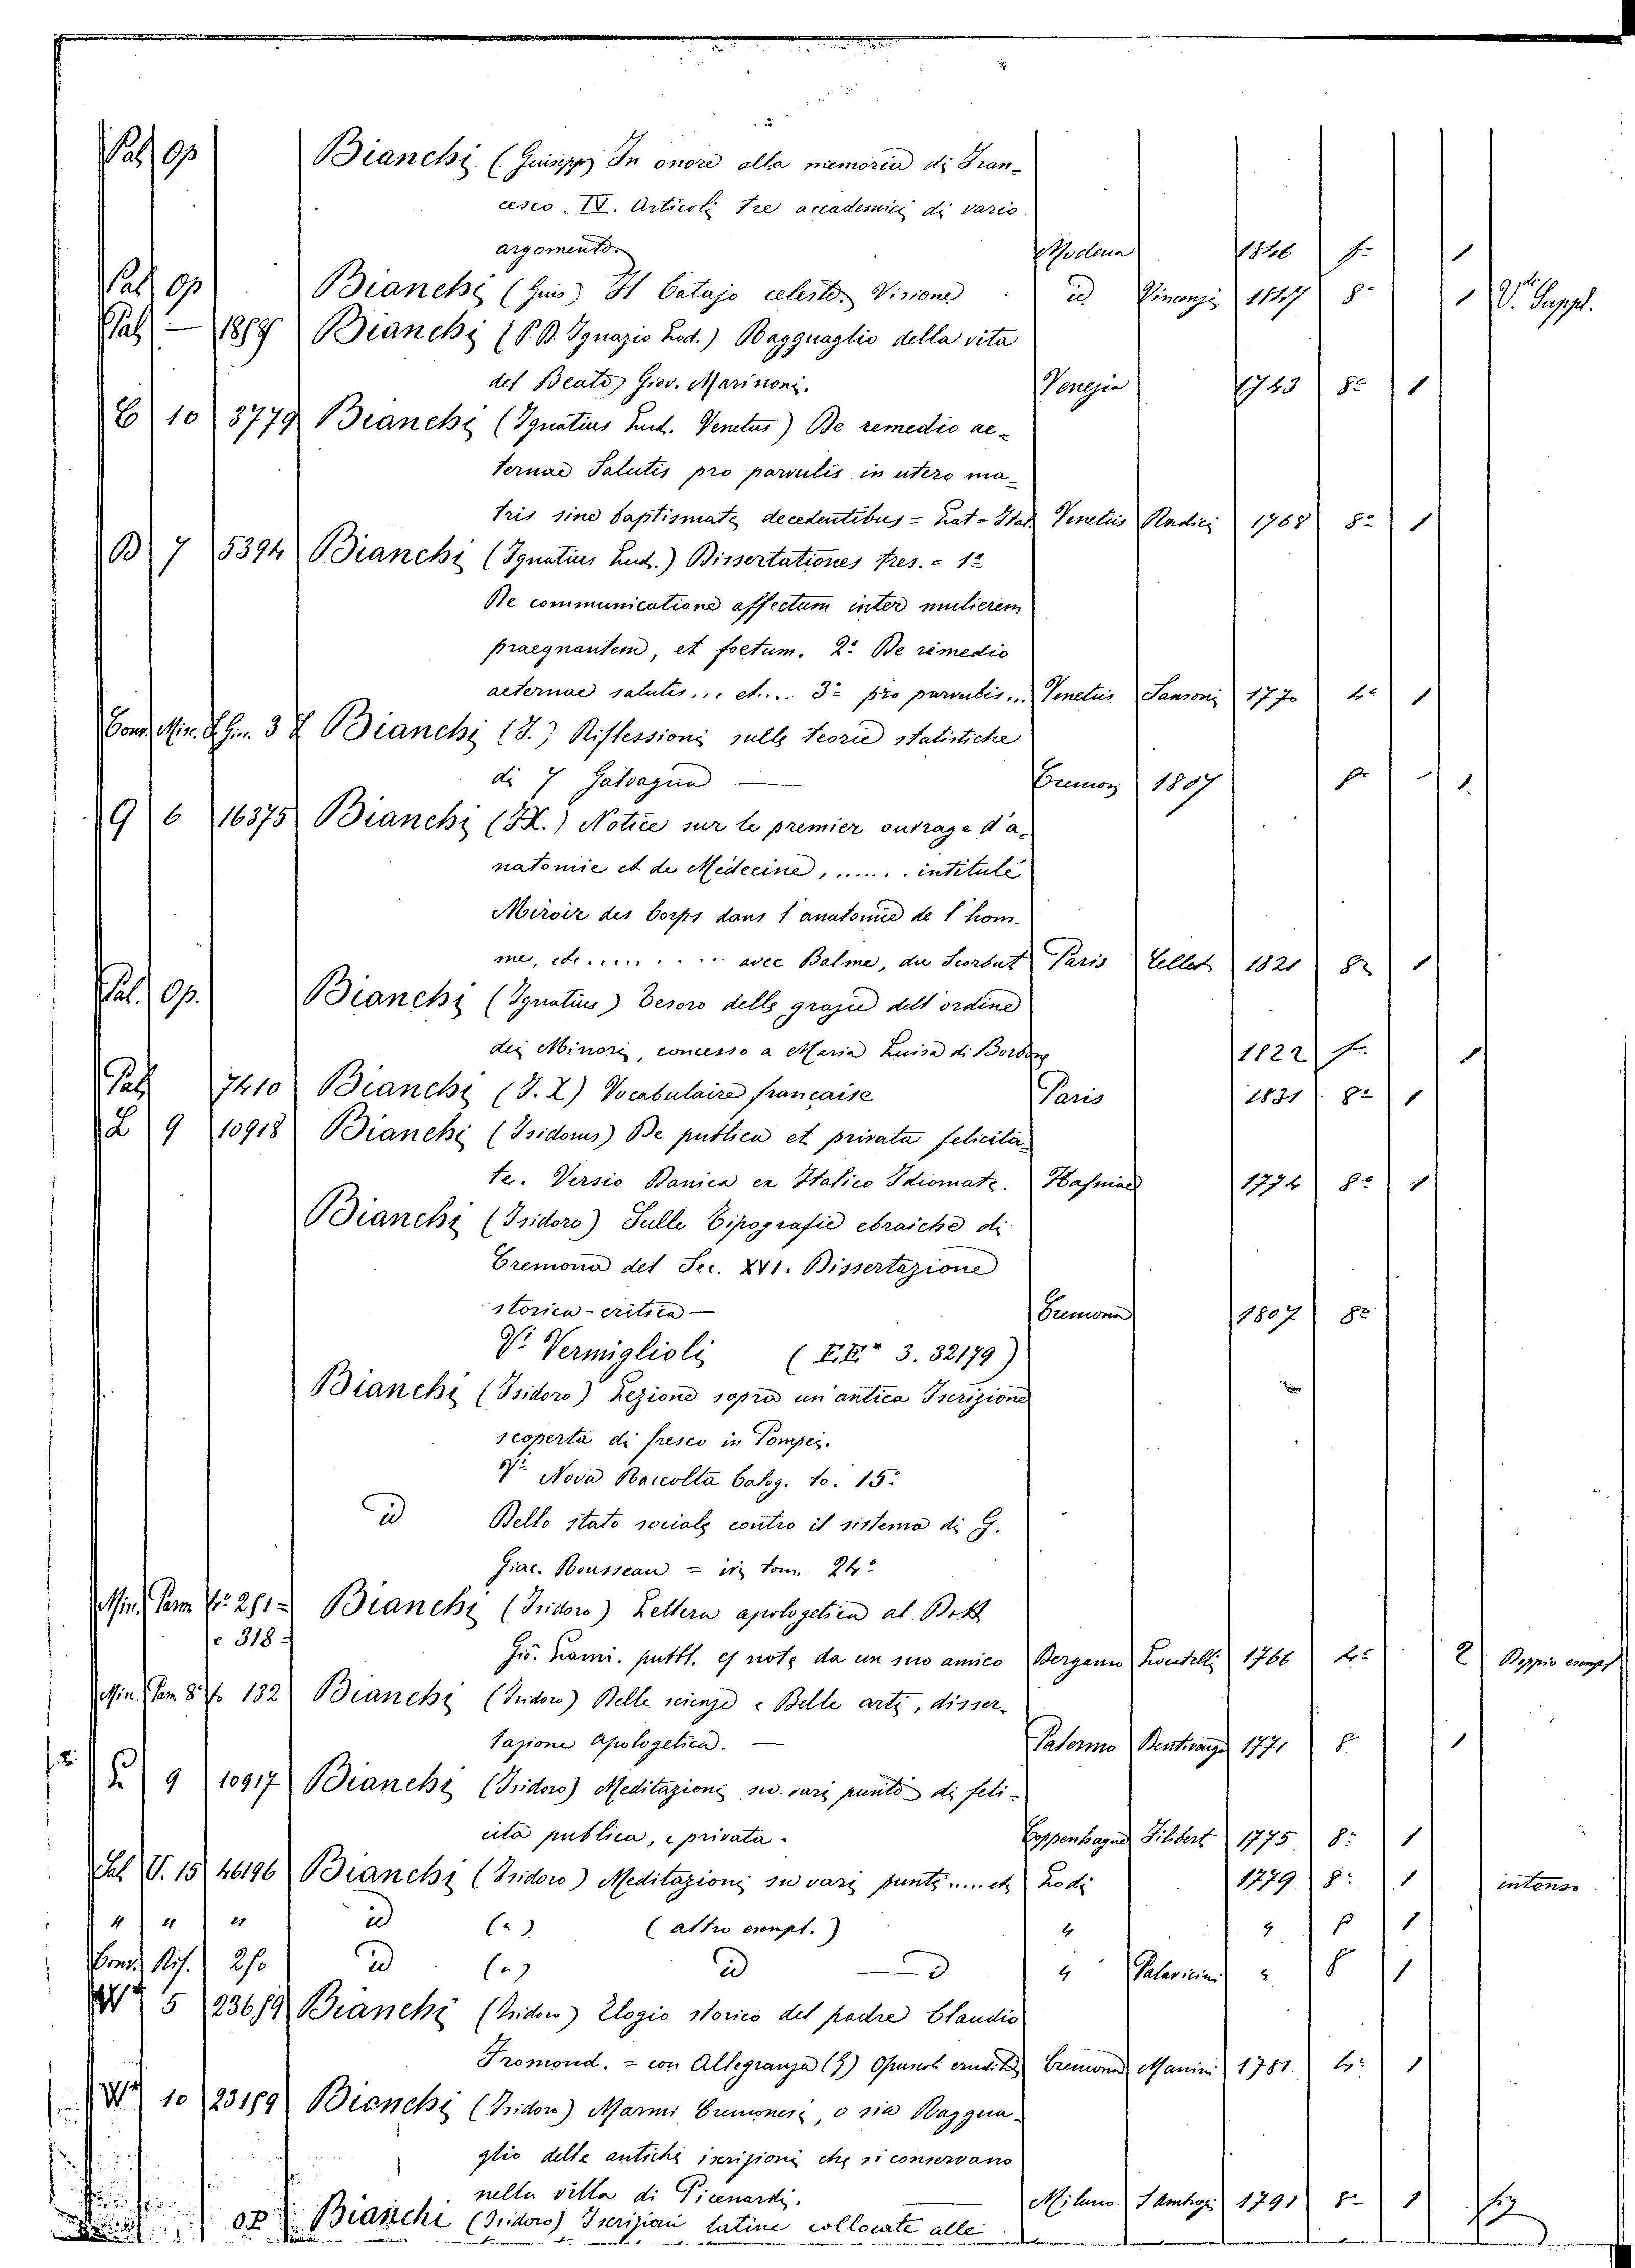 Pal Op Bianchi (Giuseppe) In onore alla memoria di Fran-
cesco IV. Articoli tre accademici di vario
argomento. Modena 1846 f- 1
Pal Op Bianchi (Gius) Il Catajo celeste. Visione id Vincenzi 1847 8º 1 Vdi Suppl.
Pal — Bianchi (P. D. Ignazio Lod.) Ragguaglio della vita
del Beato Giov. Marinoni. Venezia 1743 8º 1
C 10 3779 Bianchi (Ignatius Lud. Venetus) De remedio ae-
ternae Salutis pro parvulis in utero ma-
tris sine baptismate decedentibus = Lat = Ital Venetiis Radici 1768 8º 1
B 7 5394 Bianchi (Ignatius Lud.) Dissertationes tres. = 1º
De communicatione affectum inter mulierem
praegnantem, et foetum. 2º De remedio
aeternae salutis... et.... 3º pro parvulis... Venetiis Sansoni 1770 4º 1
Min. Bianchi (I.) Riflessioni sulle teorie statistiche
di Cremona 1807 1
9 6 16375 Bianchi (H.) Notice sur le premier ouvrage d'a-
natomie et de Médecine, ...... intitulé
Miroir des Corps dans l'anatomie de l'hom-
me, etc........... avec Balme, du Scorbut Paris 1821 8º 1
Pal. Op. Bianchi (Ignatius) Tesoro delle grazie dell'ordine
dei Minori, concesso a Maria Luisa di Borbone 1822 f- 1
Pal 7410 Bianchi (I. L) Vocabulaire française Paris 1831 8º 1
L 9 10918 Bianchi (Isidorus) De publica et privata felicita-
te. Versio Danica ex Italico Idiomate. Hafniae 1774 8º 1
Bianchi (Isidoro) Sulle Tipografie ebraiche di
Cremona del Sec. XVI. Dissertazione
storica-critica — Cremona 1807 8º
Vi Vermiglioli ( 3. 32179)
Bianchi (Isidoro) Lezione sopra un'antica Iscrizione
scoperta di fresco in Pompei.
Vi Nova Raccolta Calog. to. 15º
id Dello stato sociale contro il sistema di G.
Giac. Rousseau = ivi tom. 24º
Min. Parm Bianchi (Isidoro) Lettera apologetica al Dott
e 318 = Gio. Lami. pubbl. e note da un suo amico Bergamo Locatelli 1766 4º 2 Doppio esempl
Min. Parm 8º 132 Bianchi (Isidoro) Delle scienze e Belle arti, disser-
tazione Apologetica. — Palermo 1771 8 1
L 9 10917 Bianchi (Isidoro) Meditazioni su vari punti di feli-
cità publica, e privata. Coppenhague Filibert 1775 8º 1
V. 15 46196 Bianchi (Isidoro) Meditazioni su vari punti .....etc Lodi 1779 8º 1 intonso
" " " id (") (altro esempl.) " " 8 1
id (") id " Palavicini " 8 1
5 Bianchi (Isidoro) Elogio storico del padre Claudio
Fromond. = con Allegranza (G) Opuscoli eruditi Cremona Manini 1781 4º 1
10 Bianchi (Isidoro) Marmi Cremonesi, o sia Raggua-
glio delle antiche iscrizioni che si conservano
nella villa di Picenardi. Milano 1791 8º 1
Bianchi (Isidoro) Iscrizioni latine collocate alle